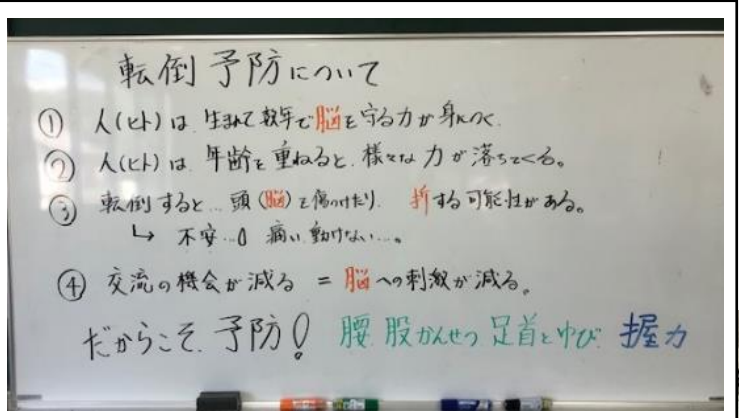 転倒予防について
① 人(ヒト)は 生まれて数年で脳を守る力が身につく
② 人(ヒト)は 年齢を重ねると、様々な力が落ちてくる。
③ 転倒すると… 頭(脳)を傷つけたり 折する可能性がある。
↳ 不安…。痛い、動けない…。
④ 交流の機会が減る = 脳への刺激が減る。
だからこそ、予防! 腰 股かんせつ 足首とゆび 握力